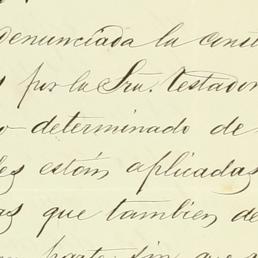 denunciada la cons
por la Sra. testador
determinado de
están aplicadas
que tambien de
parte sin que